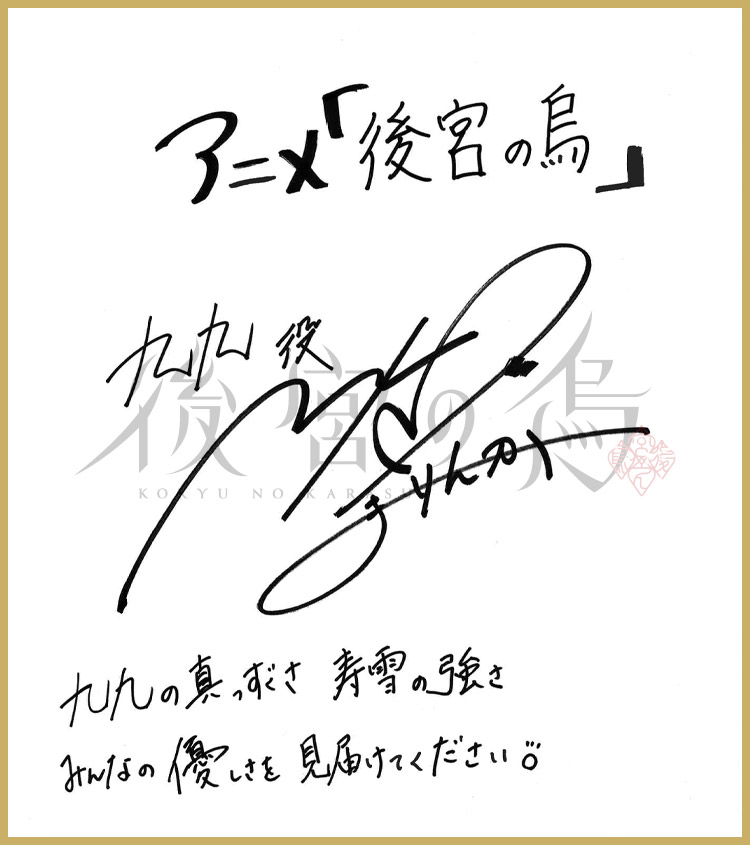 アニメ「後宮の烏」
九九 役
後宮の烏
KOKYU NO KARASU
九九の真っすぐさ 寿雪の強さ
みんなの優しさを 見届けてください